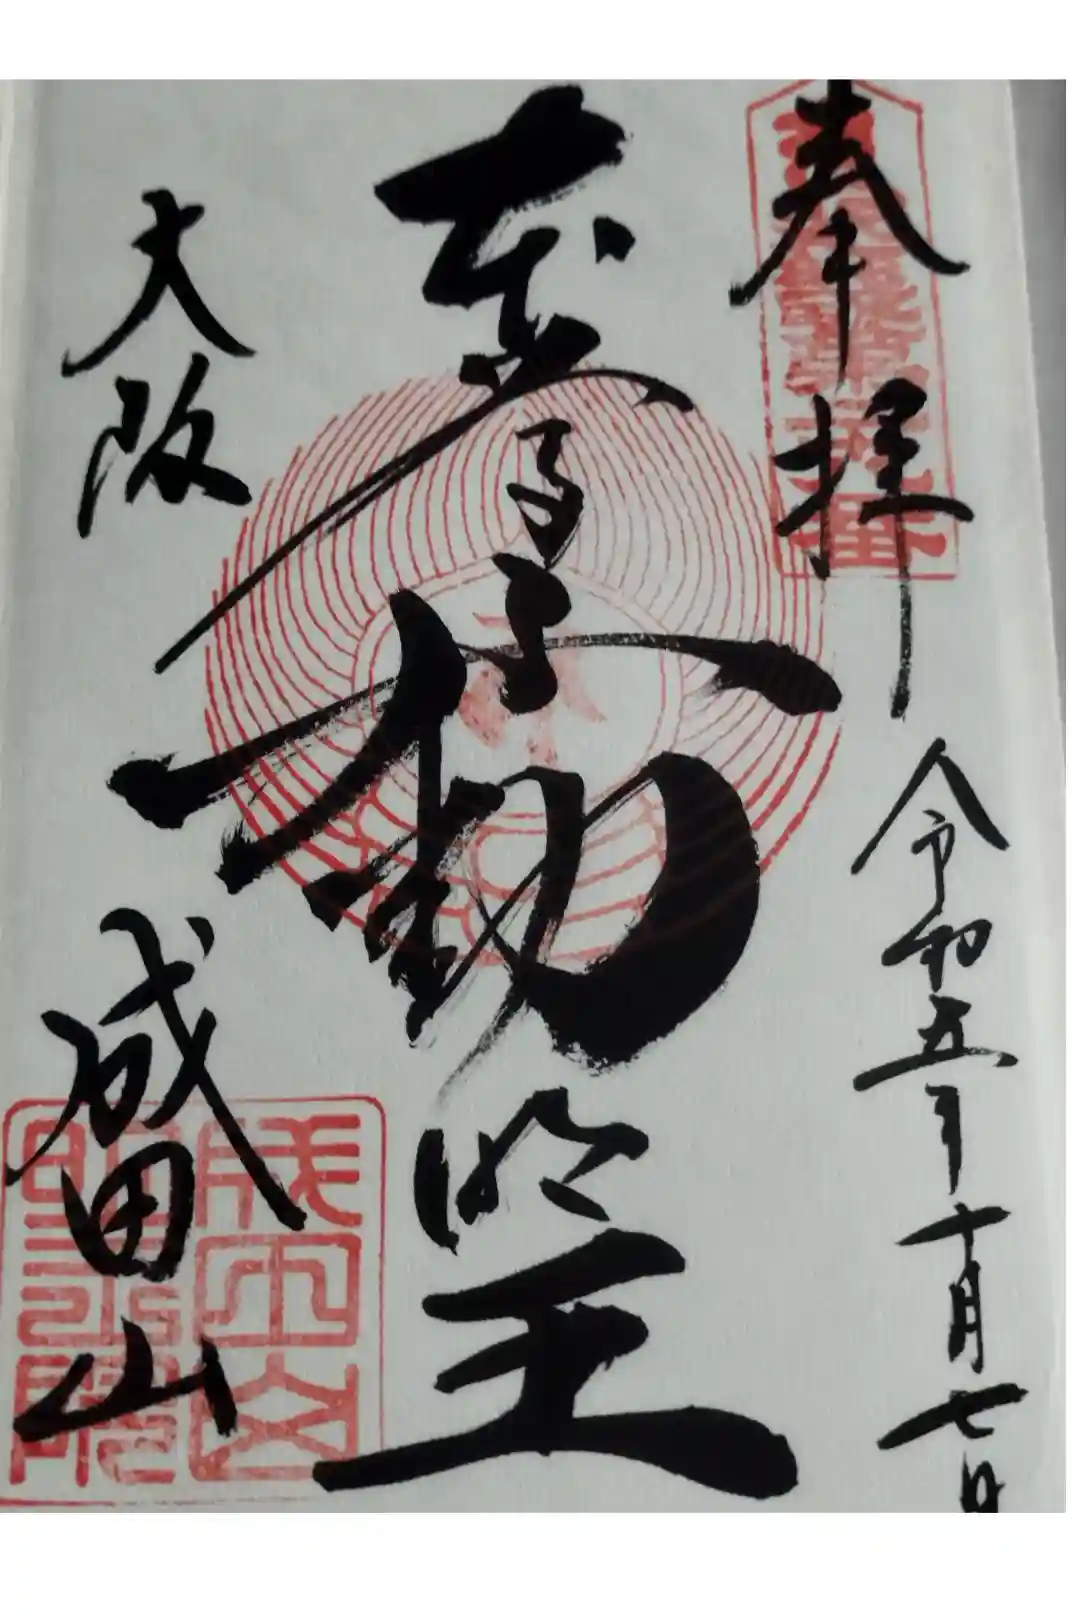 奉拝
令和五年十月七日
不動明王
大阪
成田山
成田山
明王院